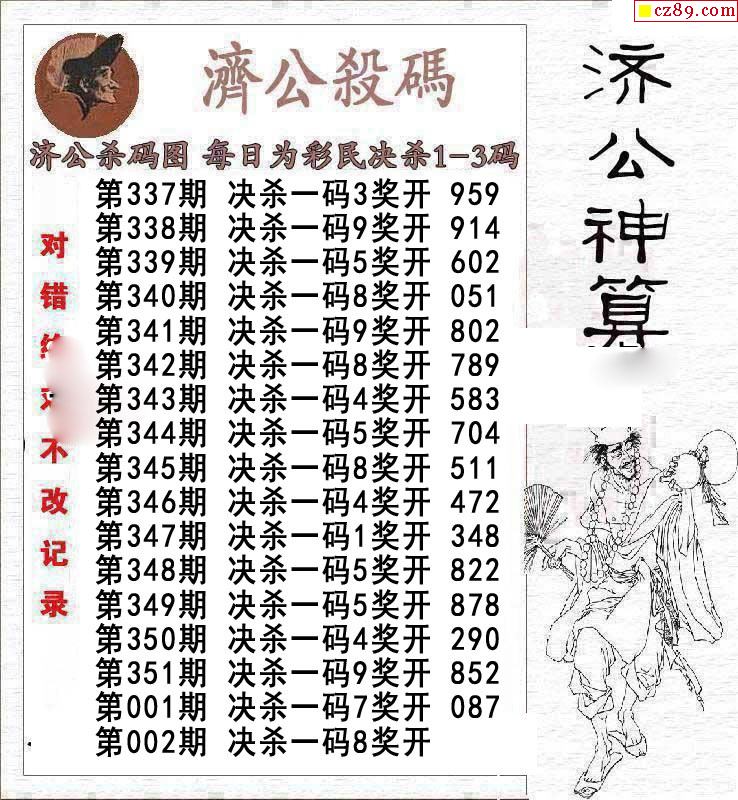 cz89.com
濟公殺碼
济公杀码图 每日为彩民决杀1-3码
第337期 决杀一码3奖开 959
第338期 决杀一码9奖开 914
第339期 决杀一码5奖开 602
第340期 决杀一码8奖开 051
第341期 决杀一码9奖开 802
第342期 决杀一码8奖开 789
第343期 决杀一码4奖开 583
第344期 决杀一码5奖开 704
第345期 决杀一码8奖开 511
第346期 决杀一码4奖开 472
第347期 决杀一码1奖开 348
第348期 决杀一码5奖开 822
第349期 决杀一码5奖开 878
第350期 决杀一码4奖开 290
第351期 决杀一码9奖开 852
第001期 决杀一码7奖开 087
第002期 决杀一码8奖开
对错
不改记录
济公神算